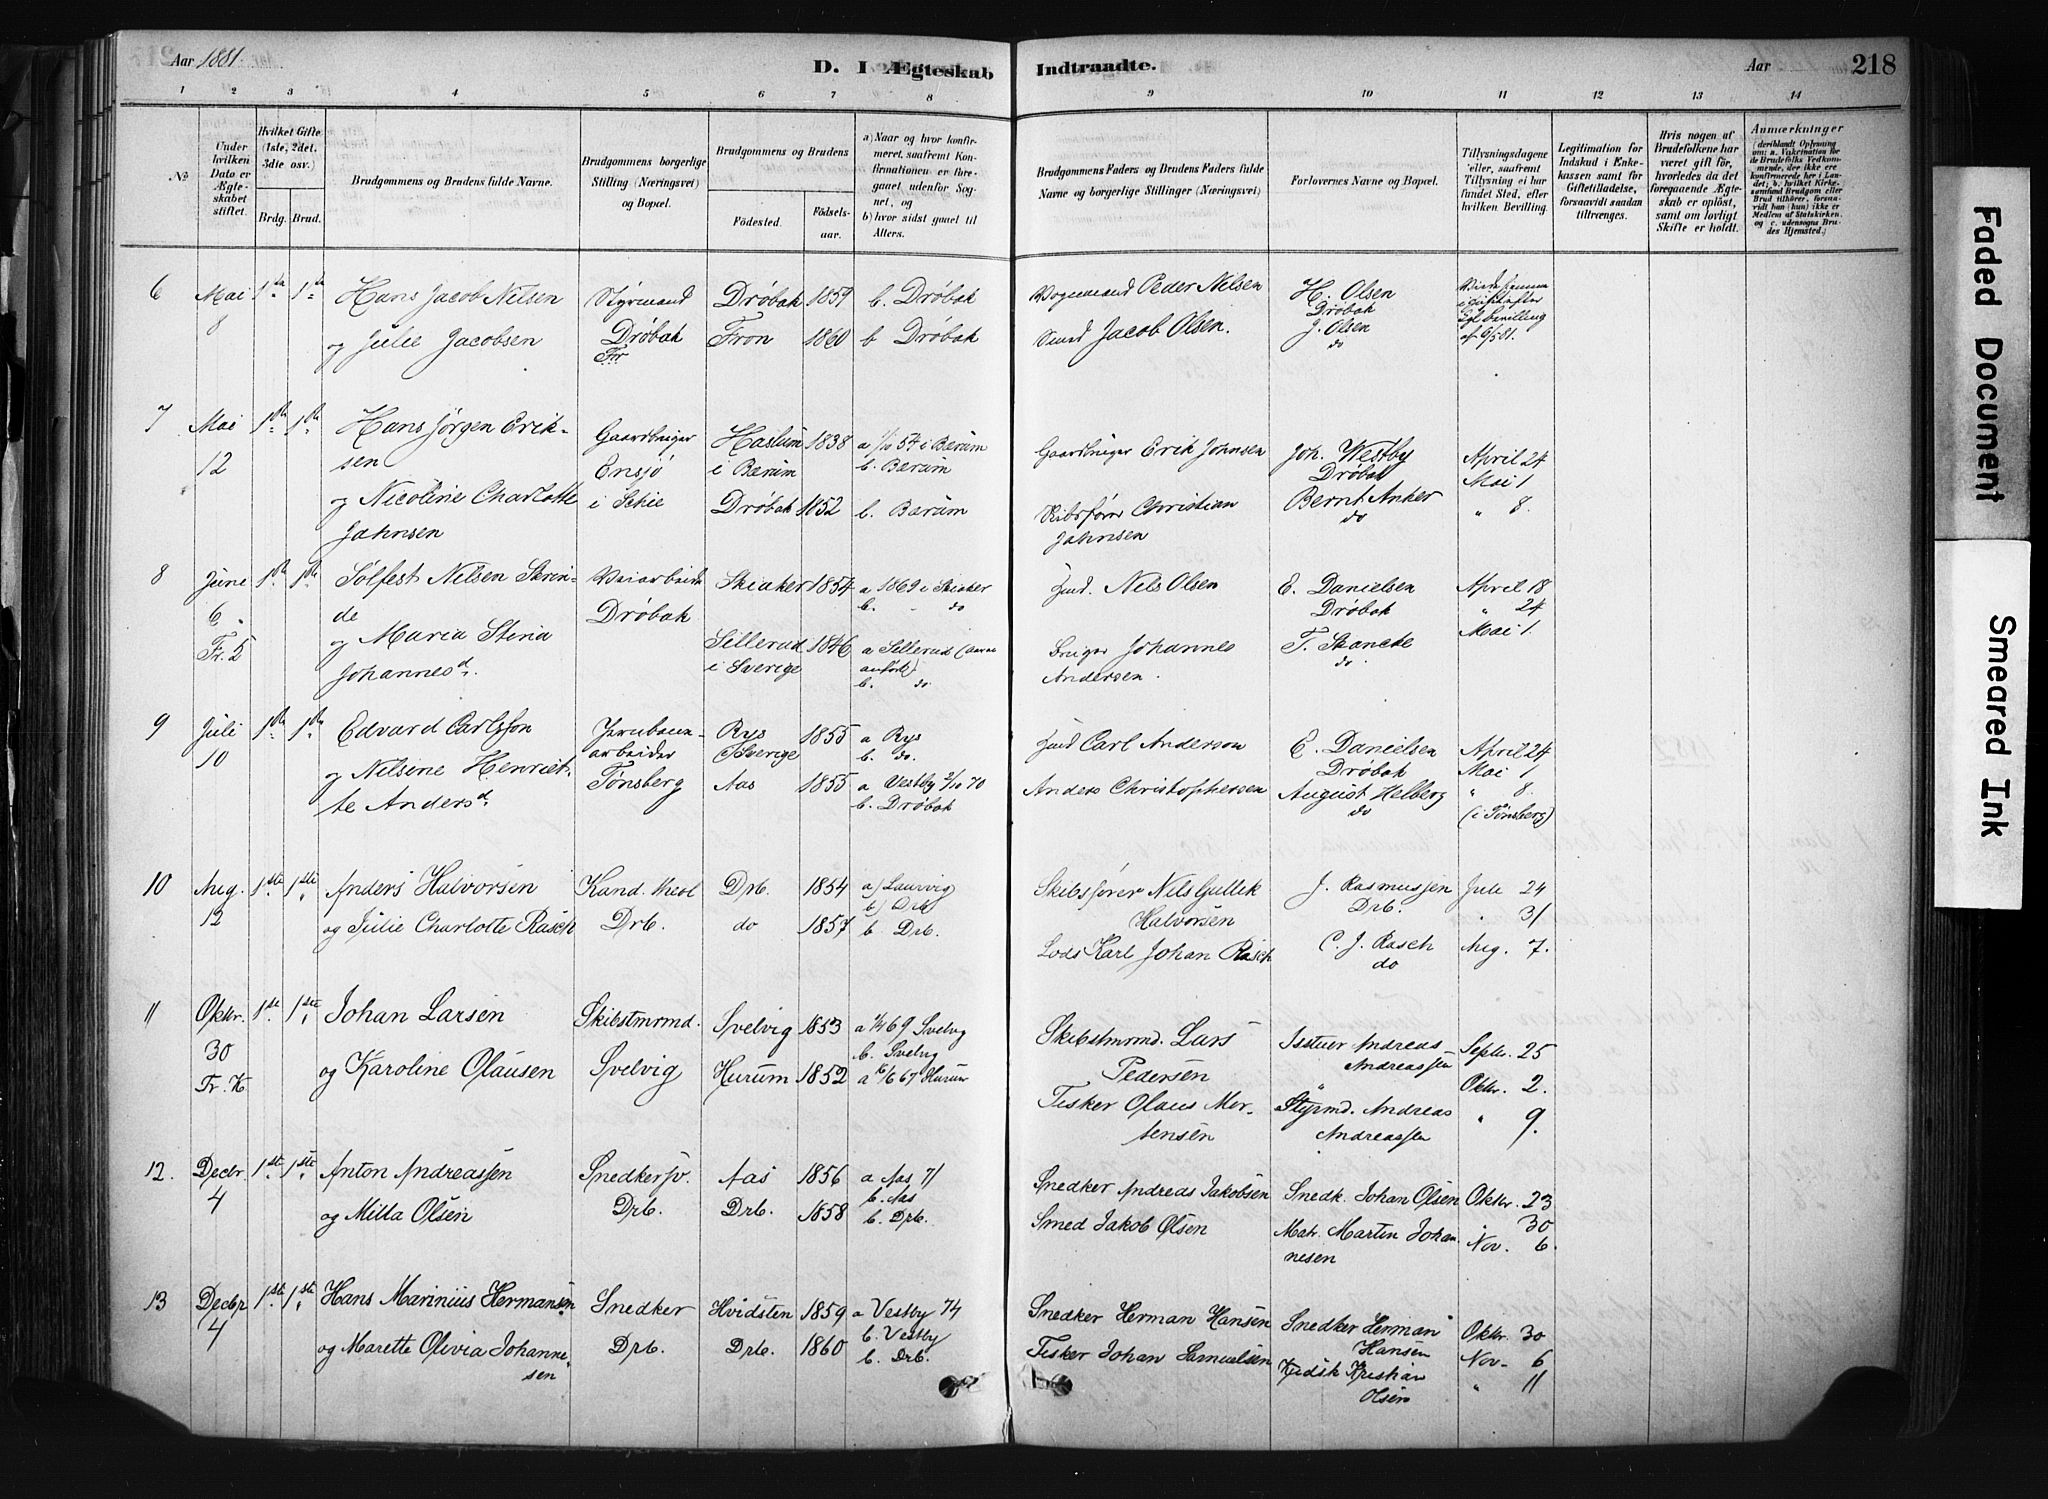 Aar 1881.
D. I Ægteskab Indtraadte.
Aar
218
1 2 3 4 5 6 7 8 9 10 11 12 13 14
No.
Under hvilken Dato er Ægteskabet stiftet.
Hvilket Gifte (1ste, 2det, 3die osv.)
Brdg. Brud.
Brudgommens og Brudens fulde Navne.
Brudgommens borgerlige Stilling (Næringsvei) og Bopæl.
Brudgommens og Brudens
Födested.
Födselsaar.
a) Naar og hvor konfirmeret, saafremt Konfirmationen er foregaaet udenfor Sognet, og
b) hvor sidst gaaet til Alters.
Brudgommens Faders og Brudens Faders fulde Navne og borgerlige Stillinger (Næringsvei)
Forlovernes Navne og Bopæl.
Tillysningsdagene eller, saafremt Tillysning ei har fundet Sted, efter hvilken Bevilling.
Legitimation for Indskud i Enkekassen samt for Giftetilladelse, forsaavidt saadan tiltrænges.
Hvis nogen af Brudefolkene har været gift för, hvorledes da det foregaaende Ægteskab er oplöst, samt om lovligt Skifte er holdt.
Anmærkninger
6 Mai 8 1ste 1ste Hans Jacob Nilsen Styrmand Drøbak 1859 b. Drøbak Peder Nilsen H. Olsen Drøbak
og Julie Jacobsen Drøbak Fr Fron 1860 b Drøbak Smed Jacob Olsen. J. Olsen do af 6/5 81.
7 Mai 12 1ste 1ste Hans Jørgen Eriksen Gaardbruger Haslum i Bærum 1838 a 1/10 54 i Bærum b. Bærum Gaardbruger Erik Johnsen Joh. Westby Drøbak April 24 Mai 1
og Nicoline Charlotte Jahnsen Ensjø i Schie Drøbak 1852 b. Bærum Skibsfører Christian Jahnsen Bernt Anker do " 8.
8 June 6. Fr. 5 1ste 1ste Solfest Nilsen Skreinde Veiarbeider Skiaker 1854 a 1869 i Skiaker b. do Nils Olsen E. Danielsen Drøbak April 18 " 24
og Maria Stina Johannesd. Drøbak Sillerud i Sverige 1846 a Sillerud b. do Bruger Johannes Andersen. T. Skancke do Mai 1.
9 Juli 10 1ste 1ste Edvard Carlsson Jernbanearbeider Rys Sverige 1855 a Rys b. do. Carl Anderson E. Danielsen Drøbak April 24 Mai 1
og Nilsine Henriette Andersd. Tønsberg Aas 1855 a Vestby 2/10 70 b. Drøbak Anders Christophersen August Helberg do " 8. (i Tønsberg)
10 Aug. 12 1ste 1ste Anders Halvorsen Kand. theol Drb. 1854 a) Laurvig b) Drb. Skibsfører Nils Gullik Halvorsen J. Rasmussen Drb. Jule 24 " 31
og Julie Charlotte Rasch Drb. do 1857 b. Drb. Lods Karl Johan Rasch C. J. Rasch do Aug. 7.
11 Oktbr. 30 Fr. K 1ste 1ste Johan Larsen Skibstmrmd. Svelvig 1853 a 69 Svelvig b. Svelvig Skibstmrmd. Lars Pedersen Andreas Andreassen Septbr. 25
og Karoline Olausen Svelvig Hurum 1852 a 67 Hurum Fisker Olaus Mortensen Styrmd. Andreas Andreassen Oktbr. 2. " 9.
12. Decbr 4 1ste 1ste Anton Andreassen Snedkersv. Aas 1856 a Aas 71 b. Aas Snedker Andreas Jakobsen Snedk. Johan Olsen Oktbr. 23 " 30
og Milla Olsen Drb. Drb. 1858 b. Drb. Smed Jakob Olsen Matr. Martin Johannesen Nov. 6.
13 Decbr 4 1ste 1ste Hans Marinius Hermansen Snedker Hvidsten 1859 a Vestby 74 b. Vestby Snedker Herman Hansen Snedker Herman Hansen Oktbr. 30
og Marette Olivia Johannesen Drb. Drb. 1860 b. Drb. Fisker Johan Samuelsen Kristian Olsen Nov. 6 " 11
Faded Document
Smeared Ink